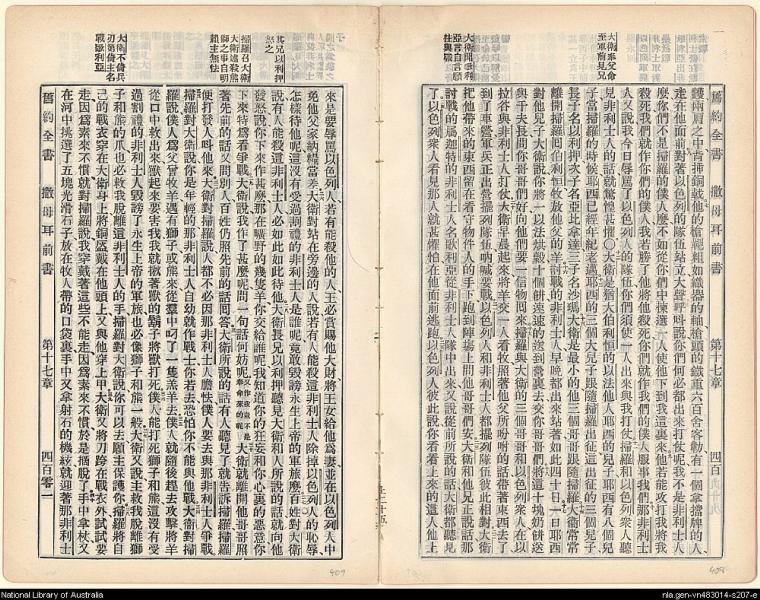 大衛奉父命
至軍前見兄
大衛聞歌利
亞言自言願
往與戰
舊約全書 撒母耳前書 第十七章 四百
護兩肩之中背插銅戟他的槍桿粗如織器的軸槍頭的鐵重六百舍客勒有一個拿擋牌的人
走在他面前對著以色列的隊伍站立大聲呼叫說你們何必都出來打仗呢我不是非利士人
麼你們不是掃羅的僕人麼不如從你們中揀選一人使他下到我這裏來他若能攻打我將我
殺死我們就作你們的僕人我若勝了他將他殺死你們就作我們的僕人服事我們那非利士
人又說我今日辱罵了以色列人的隊伍你們須使一人出來與我打仗掃羅和以色列衆人聽
見非利士人的話就驚惶甚懼○大衛是猶大伯利恆的以法他人耶西的兒子耶西有八個兒
子當掃羅的時候耶西已經年紀老邁耶西的三個大兒子跟隨掃羅出征這出征的三個兒子
長子名以利押次子名亞比拿達三子名沙瑪大衛是最小的他三個哥哥跟隨掃羅大衛常常
離開掃羅回伯利恆牧放他父的羊討戰的非利士人早晚都出來站著如此四十日一日耶西
對他兒子大衛說你將一以法烘穀十個餅速速的送到營裏去交你哥哥們將這十塊奶餅送
與千夫長問你哥哥們好向他們要一信物回來掃羅與大衛的三個哥哥和以色列衆人在以
拉谷與非利士人打仗大衛早晨起來將羊交一人看牧照著他父所吩咐的話帶著東西去了
到了車營軍兵正出營擺列隊伍吶喊要戰以色列人和非利士人都擺列隊伍彼此相對大衛
把他帶來的東西留在看守物件人的手下跑到陣場上問他哥哥們安大衛和他兄正說話那
討戰的屬迦特的非利士人名歌利亞從非利士人隊中出來又說從前所說的話大衛都聽見
了以色列衆人看見那人就甚懼怕在他面前逃跑以色列人彼此說你看看上來的這人他上
其兄以利押
怒之
掃羅召大衛
大衛述殺熊
獅之事自明
賴主無怯
大衛不備兵
刃第倚主名
戰歌利亞
來是要辱罵以色列人若有能殺他的人王必賞賜他大財將王女給他爲妻並在以色列人中
免他父家納糧當差大衛對站在旁邊的人說若有人能殺這非利士人除掉以色列人的恥辱
怎樣待他呢這沒有受過割禮的非利士人是誰呢竟敢毀謗永生上帝的軍旅麼百姓對大衛
說有人能殺這非利士人必如此如此待他大衛長兄以利押聽見大衛和人所說的話就向他
發怒說你下來作甚麼那在曠野的幾隻羊你交給誰呢我知道你的狂妄和你心裏的惡意你
下來特爲看爭戰大衛說我作了甚麼呢問一句話何妨呢大衛就離開他哥哥照
著先前的話又問別人百姓仍照先前的話回答大衛所說的話有人聽見了就告訴掃羅掃羅
便打發人呌他來大衛對掃羅說人都不必因那非利士人膽怯僕人要去與那非利士人爭戰
掃羅對大衛說你是年輕的那非利士人自幼就作戰士你若去恐怕你不能與他戰大衛對掃
羅說僕人爲父曾牧羊遇有獅子或熊來從羣中叼了一隻羔羊去僕人就隨後趕去攻擊將羊
從口中救出來獸起來要害我我就揪著獸的鬍子將獸打死僕人能打死獅子和熊這沒有受
過割禮的非利士人毀謗了永生上帝的軍旅也必像獅子和熊一般大衛又說主救我脫離獅
子和熊的爪也必救我脫離這非利士人的手掃羅對大衛說你可以去願主保護你掃羅將自
己的戰衣穿在大衛身上將銅盔戴在他頭上又與他穿上甲大衛又將刀跨在戰衣外試試要
走因爲素來不慣就對掃羅說我穿戴著這些不能走因爲素來不慣於是摘脫了手中拿杖又
在河中挑選了五塊光滑石子放在牧人帶的口袋裏手中又拿射石的機絃就迎著那非利士
舊約全書 撒母耳前書 第十七章 四百零一
409
National Library of Australia
nla.gen-vn483014-s207-e